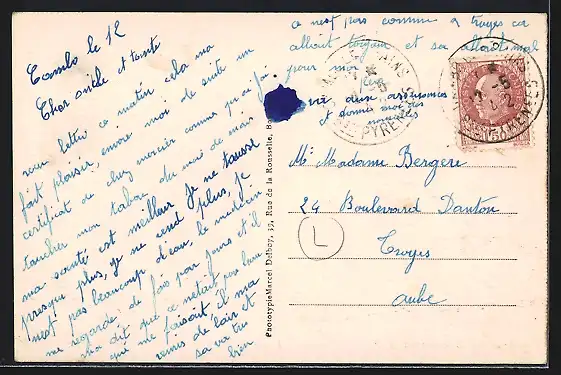 Cambo le 12
Cher oncle et tante
reçu lettre ce matin cela ma
fait plaisir, envoie moi de suite un
certificat de chez mercier comme quoi je
toucher mon tabac du moi de mars
ma santé est meilleur je ne tousse
presque plus, je ne crud plus, je
n'est pas beaucoup d'eau, le medecin
me regarde de fois par jours et il
ma dit que ce n'etait pas l'eau
qui me faisait il ma
remis de l'air et
sa va tres
bien
ce n'est pas comme a troyes ca
allait toujour et sa allait mal
pour moi
donne moi des
nouvelles
Mr Madame Bergere
24 Boulevard Danton
Troyes
Aube
L
Phototypie Marcel Delboy, 39, Rue de la Rousselle,
PYRENEES